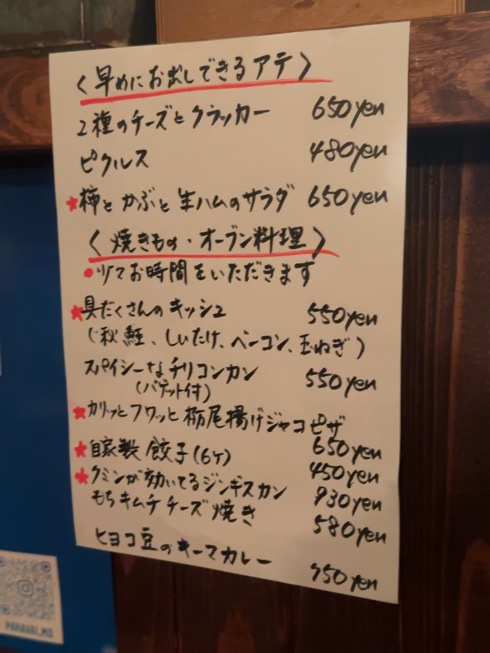 〈早めにお出しできるアテ〉
2種のチーズとクラッカー 650yen
ピクルス 480yen
★柿とかぶと生ハムのサラダ 650yen
〈焼きもの・オーブン料理〉
●少々お時間をいただきます
★具だくさんのキッシュ 550yen
(秋鮭、しいたけ、ベーコン、玉ねぎ)
スパイシーなチリコンカン 550yen
(バゲット付)
★カリッとフワッと栃尾揚げジャコピザ
650yen
★自家製餃子(6ケ) 450yen
★クミンが効いてるジンギスカン 930yen
もちキムチチーズ焼き 580yen
ヒヨコ豆のキーマカレー 950yen
PARAVAL.MO